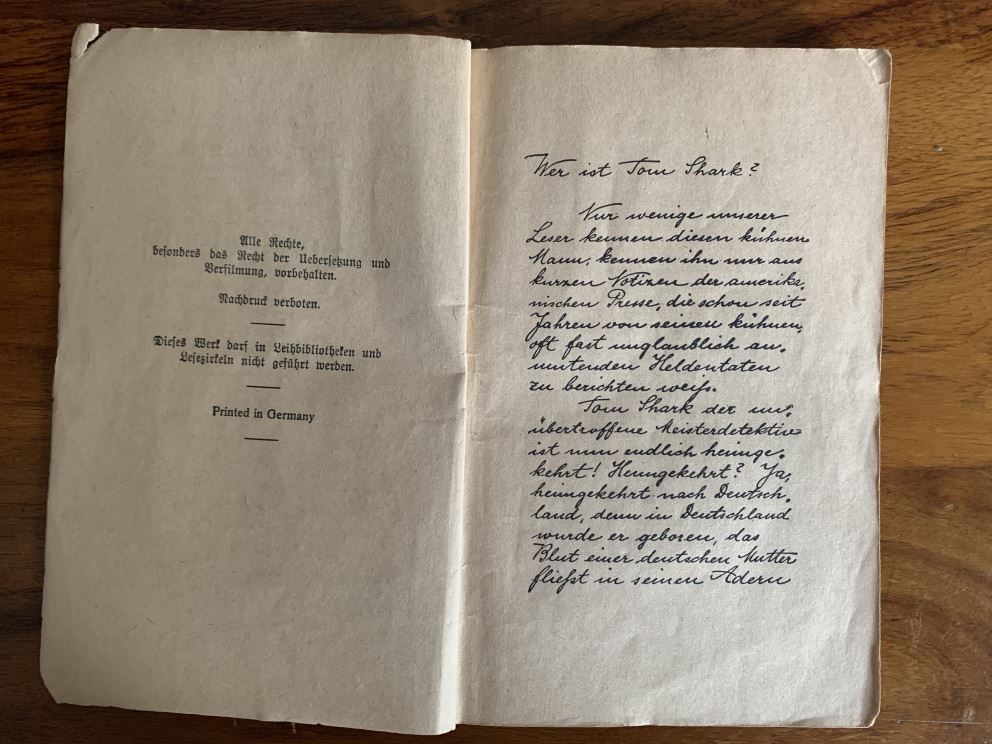 Alle Rechte,
besonders das Recht der Uebersetzung und
Verfilmung, vorbehalten.
Nachdruck verboten.
Dieses Werk darf in Leihbibliotheken und
Lesezirkeln nicht geführt werden.
Printed in Germany
Wer ist Tom Shark?
Nur wenige unserer
Leser kennen diesen kühnen
Mann, kennen ihn nur aus
kurzen Notizen der amerika-
nischen Presse, die schon seit
Jahren von seinen kühnen,
oft fast unglaublich an-
mutenden Heldentaten
zu berichten weiß.
Tom Shark der un-
übertroffene Meisterdetektiv
ist nun endlich heimge-
kehrt! Heimgekehrt? Ja,
heimgekehrt nach Deutsch-
land, denn in Deutschland
wurde er geboren, das
Blut einer deutschen Mutter
fließt in seinen Adern